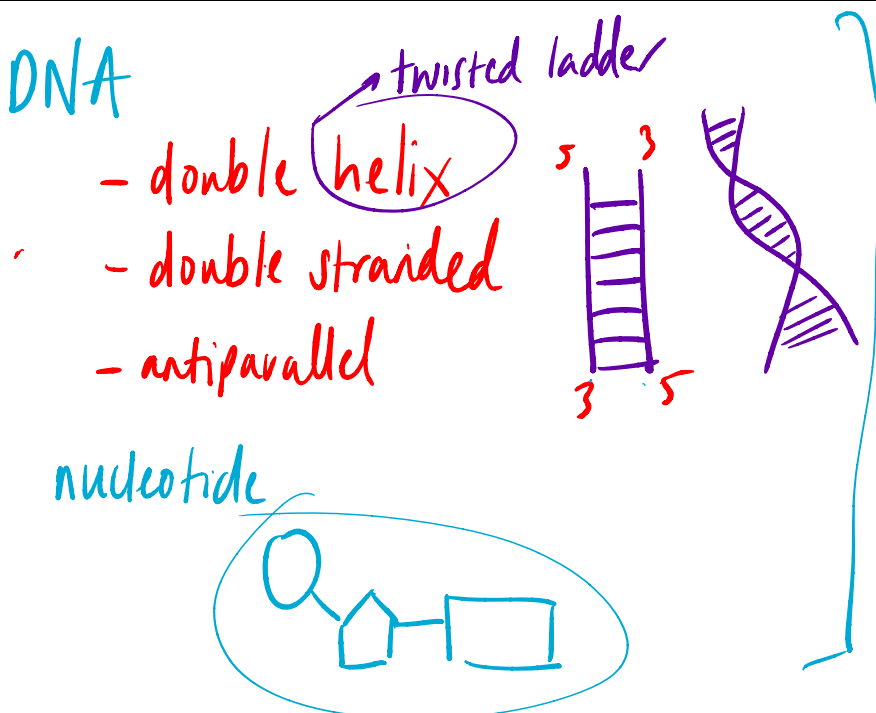 DNA
twisted ladder
- double helix
- double stranded
- antiparallel
5 3
3 5
nucleotide